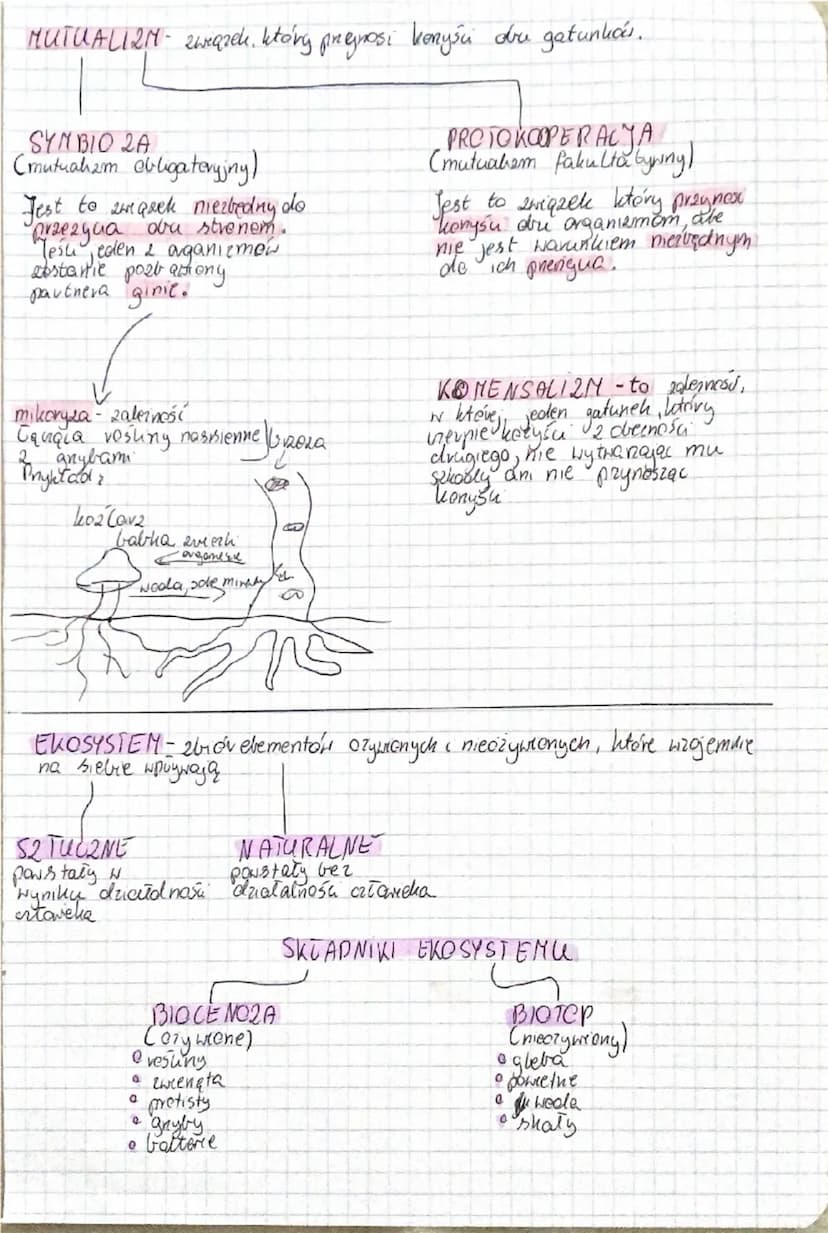 MUTUALIZM - związek, który przynosi korzyści obu gatunków.
SYMBIOZA
(mutualizm obligatoryjny)
Jest to związek niezbędny do
przeżycia obu stronom.
Jeśli jeden z organizmów
zostanie pozbawiony
partnera ginie.
PROTOKOOPERACJA
(mutualizm fakultatywny)
Jest to związek który przynosi
korzyści obu organizmom, ale
nie jest warunkiem niezbędnym
do ich przeżycia.
mikoryza - zależność
łącząca rośliny nasienne
z grzybami
Przykład:
brzoza
koźlarz
babka
organiczne
woda, sole mineral
KOMENSALIZM - to zależność,
w której jeden gatunek, który
czerpie korzyści z obecności
drugiego, nie wytwarzając mu
szkody ani nie przynosząc
korzyści
EKOSYSTEM - zbiór elementów ożywionych i nieożywionych, które wzajemnie
na siebie wpływają
SZTUCZNE
powstały w
wyniku działalności
człowieka
NATURALNE
powstały bez
działalności człowieka
SKŁADNIKI EKOSYSTEMU
BIOCENOZA
(ożywione)
rośliny
zwierzęta
protisty
grzyby
bakterie
BIOTOP
(nieożywiony)
gleba
powietrze
woda
skały